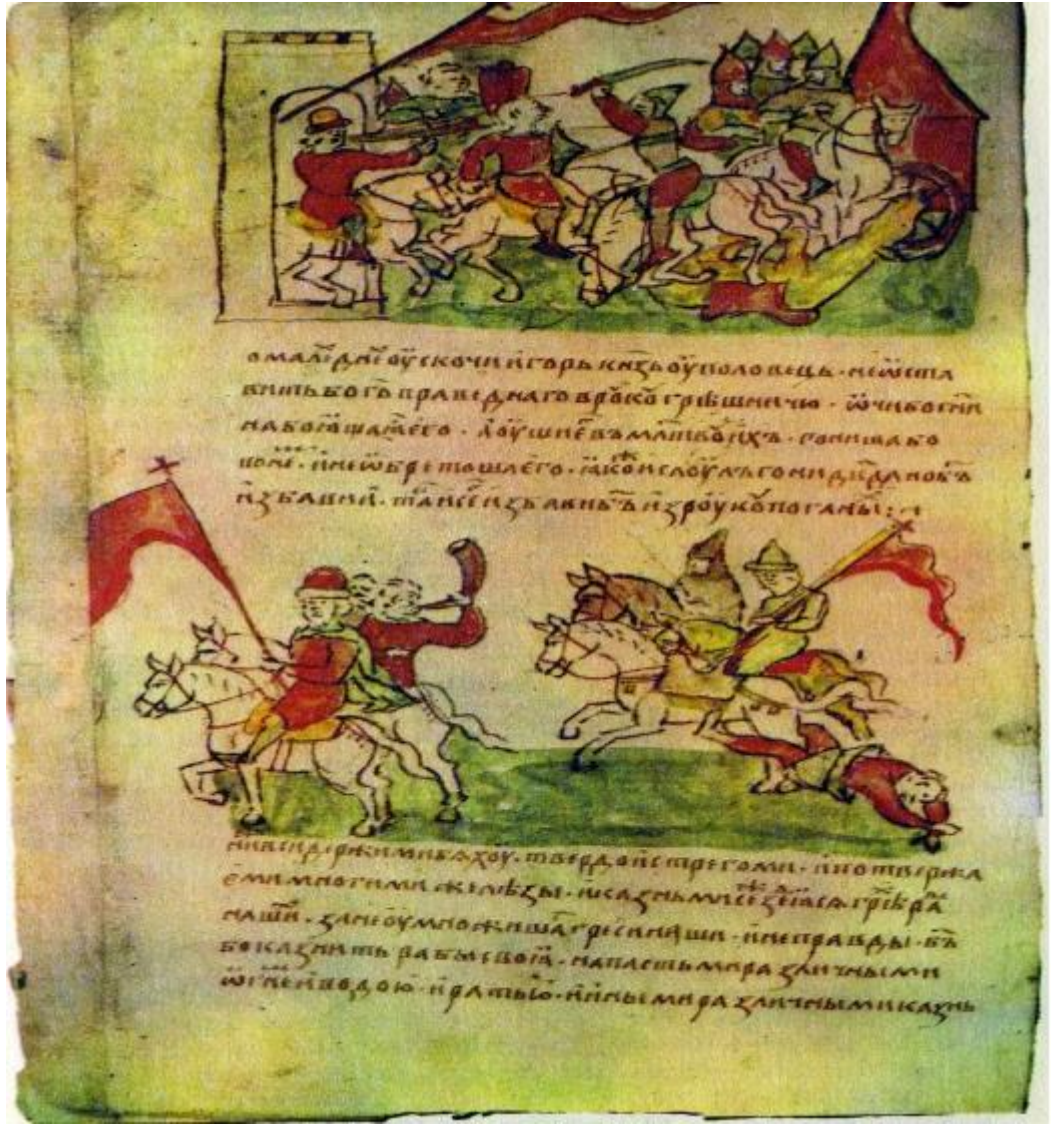 о малї днїи оу҆скочи и҆горь кнѧзь оу҆ половець · не ѡ҆ста
вить бо г҃ъ праведнаго в роко грѣшничю · ѡ҆чи бо гн҃и
на боꙗ҆щаꙗ е҆го · а҆ оу҆ши е҆в мл҃твоу и҆хъ · гониша бо
по не · и҆ не ѡ҆бретоша е҆го · ꙗ҆ко и҆ саоулъ гони дв҃да но б҃ъ
и҆збави и҆ · та и҆ се и҆збави б҃ъ из роукоу поганы :
ни вси держими бꙗхоу · твердо и҆ стрегоми · и҆ потвержа
е҆ми многими желѣзы · и҆ казньми се же сѧ грѣ ра
наши · зане оу҆множишаⷭ҇ греси наши · и҆ неправды · б҃ъ
бо казнить рабы своꙗ҆ · напастьми различными
ѡ҆гнеⷨ и҆ водою · и҆ ратью · и҆ и҆ными различными казнь